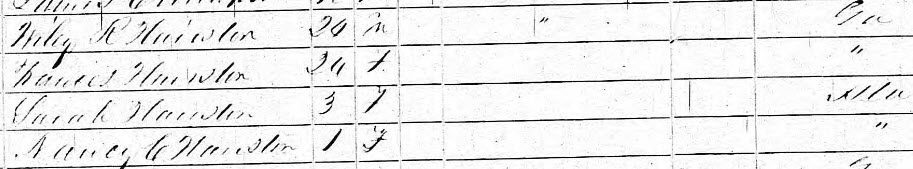 Wiley R Hairston 24 m " Ga
Frances Hairston 24 f "
Sarah Hairston 3 f Ala
Nancy C Hairston 1 F "